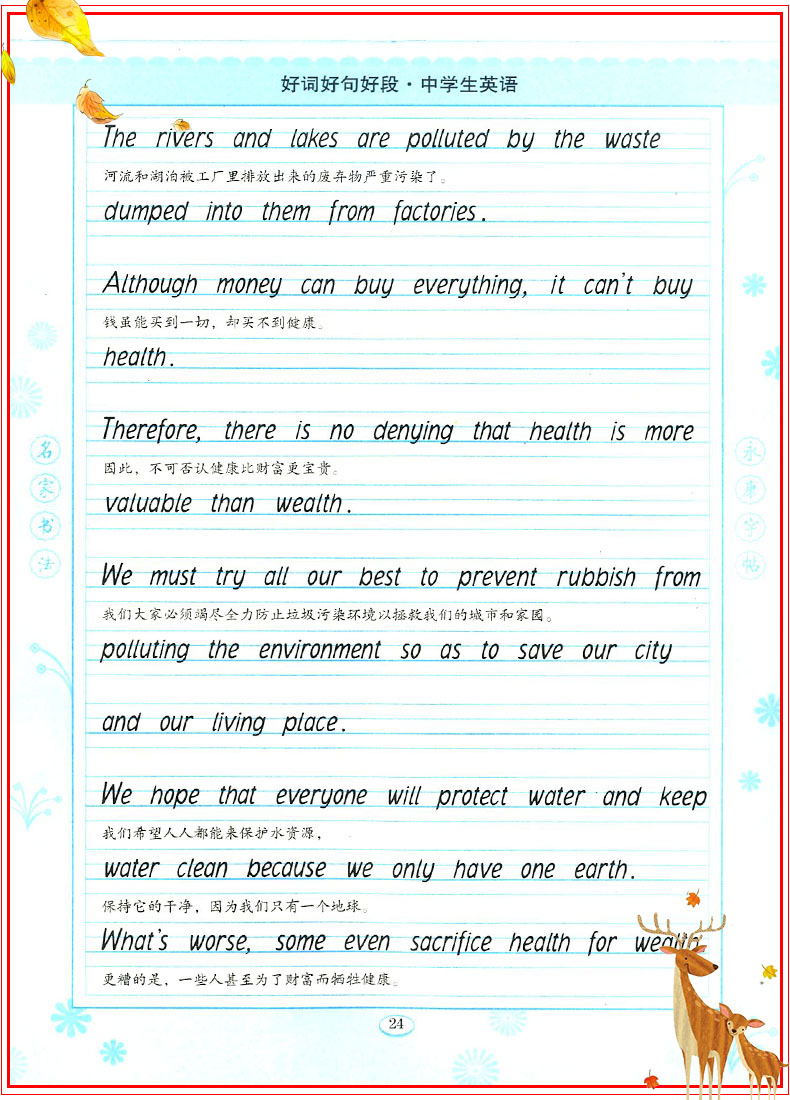 好词好句好段·中学生英语
The rivers and lakes are polluted by the waste
河流和湖泊被工厂里排放出来的废弃物严重污染了。
dumped into them from factories.
Although money can buy everything, it can't buy
钱虽能买到一切，却买不到健康。
health.
Therefore, there is no denying that health is more
因此，不可否认健康比财富更宝贵。
valuable than wealth.
We must try all our best to prevent rubbish from
我们大家必须竭尽全力防止垃圾污染环境以拯救我们的城市和家园。
polluting the environment so as to save our city
and our living place.
We hope that everyone will protect water and keep
我们希望人人都能来保护水资源，
water clean because we only have one earth.
保持它的干净，因为我们只有一个地球。
What's worse, some even sacrifice health for wealth.
更糟的是，一些人甚至为了财富而牺牲健康。
名家书法
永康字帖
24